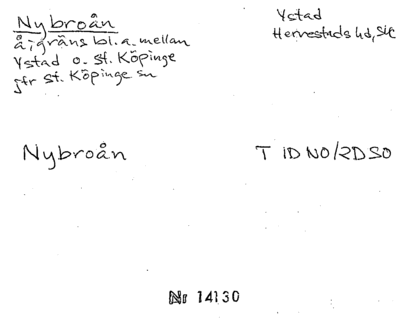 Nybroån
å; gräns bl. a. mellan
Ystad o. St. Köpinge
jfr St. Köpinge sn
Ystad
Herrestads hd, sic
Nybroån
T 1D NO/2D SO
Nr 14130